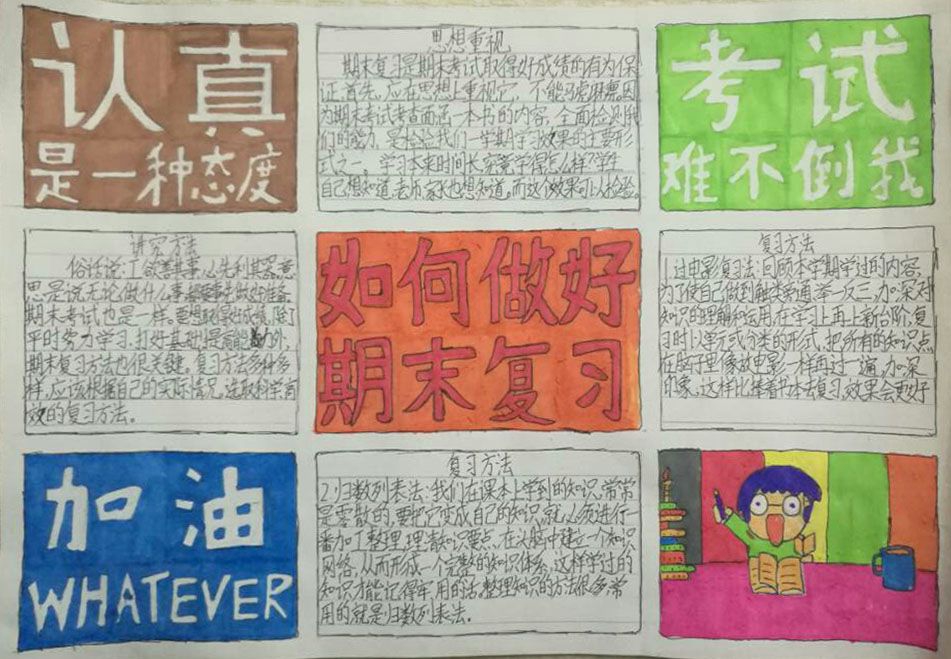 认真
是一种态度
思想重视
期末复习是期末考试取得好成绩的有为保
证首先,应在思想上重视它,不能马虎麻票,因
为期末考试考查面涵一本书的内容,全面检测我
们的能力,是检验我们一学期学习效果的主要形
式之一。学习本来时间长,究竟学得怎么样?学生
自己想知道,老师家长也想知道。而这个效果可以检验。
考试
难不倒我
讲究方法
俗话说:工欲善其事,必先利其器,意
思是说无论做什么事,都要事先做好准备
期末考试也是一样。要想取得好成绩,除了
平时努力学习,打好基础,提高能力外,
期末复习方法也很关键。复习方法多种多
样,应该根据自己的实际情况,选取科学,有
效的复习方法。
如何做好
期末复习
复习方法
1.过电影复习法:回顾本学期学过的内容,
为了使自己做到触类旁通,举一反三,加深对
知识的理解和运用,在学习上再上新台阶,复
习时以单元或分类的形式,把所有的知识点
在脑子里像放电影一样再过一遍,加深
印象,这样比捧着书本去复习,效果会更好
加油
WHATEVER
复习方法
2.归数列表法:我们在课本上学到的知识,常常
是零散的,要把它变成自己的知识,就必须进行一
番加工整理,理清知识要点,在头脑中建立一个知识
网络,从而形成一个完整的知识体系,这样学过的
知识才能记得牢,用的活。整理知识的方法很多,常
用的就是归数列表法。